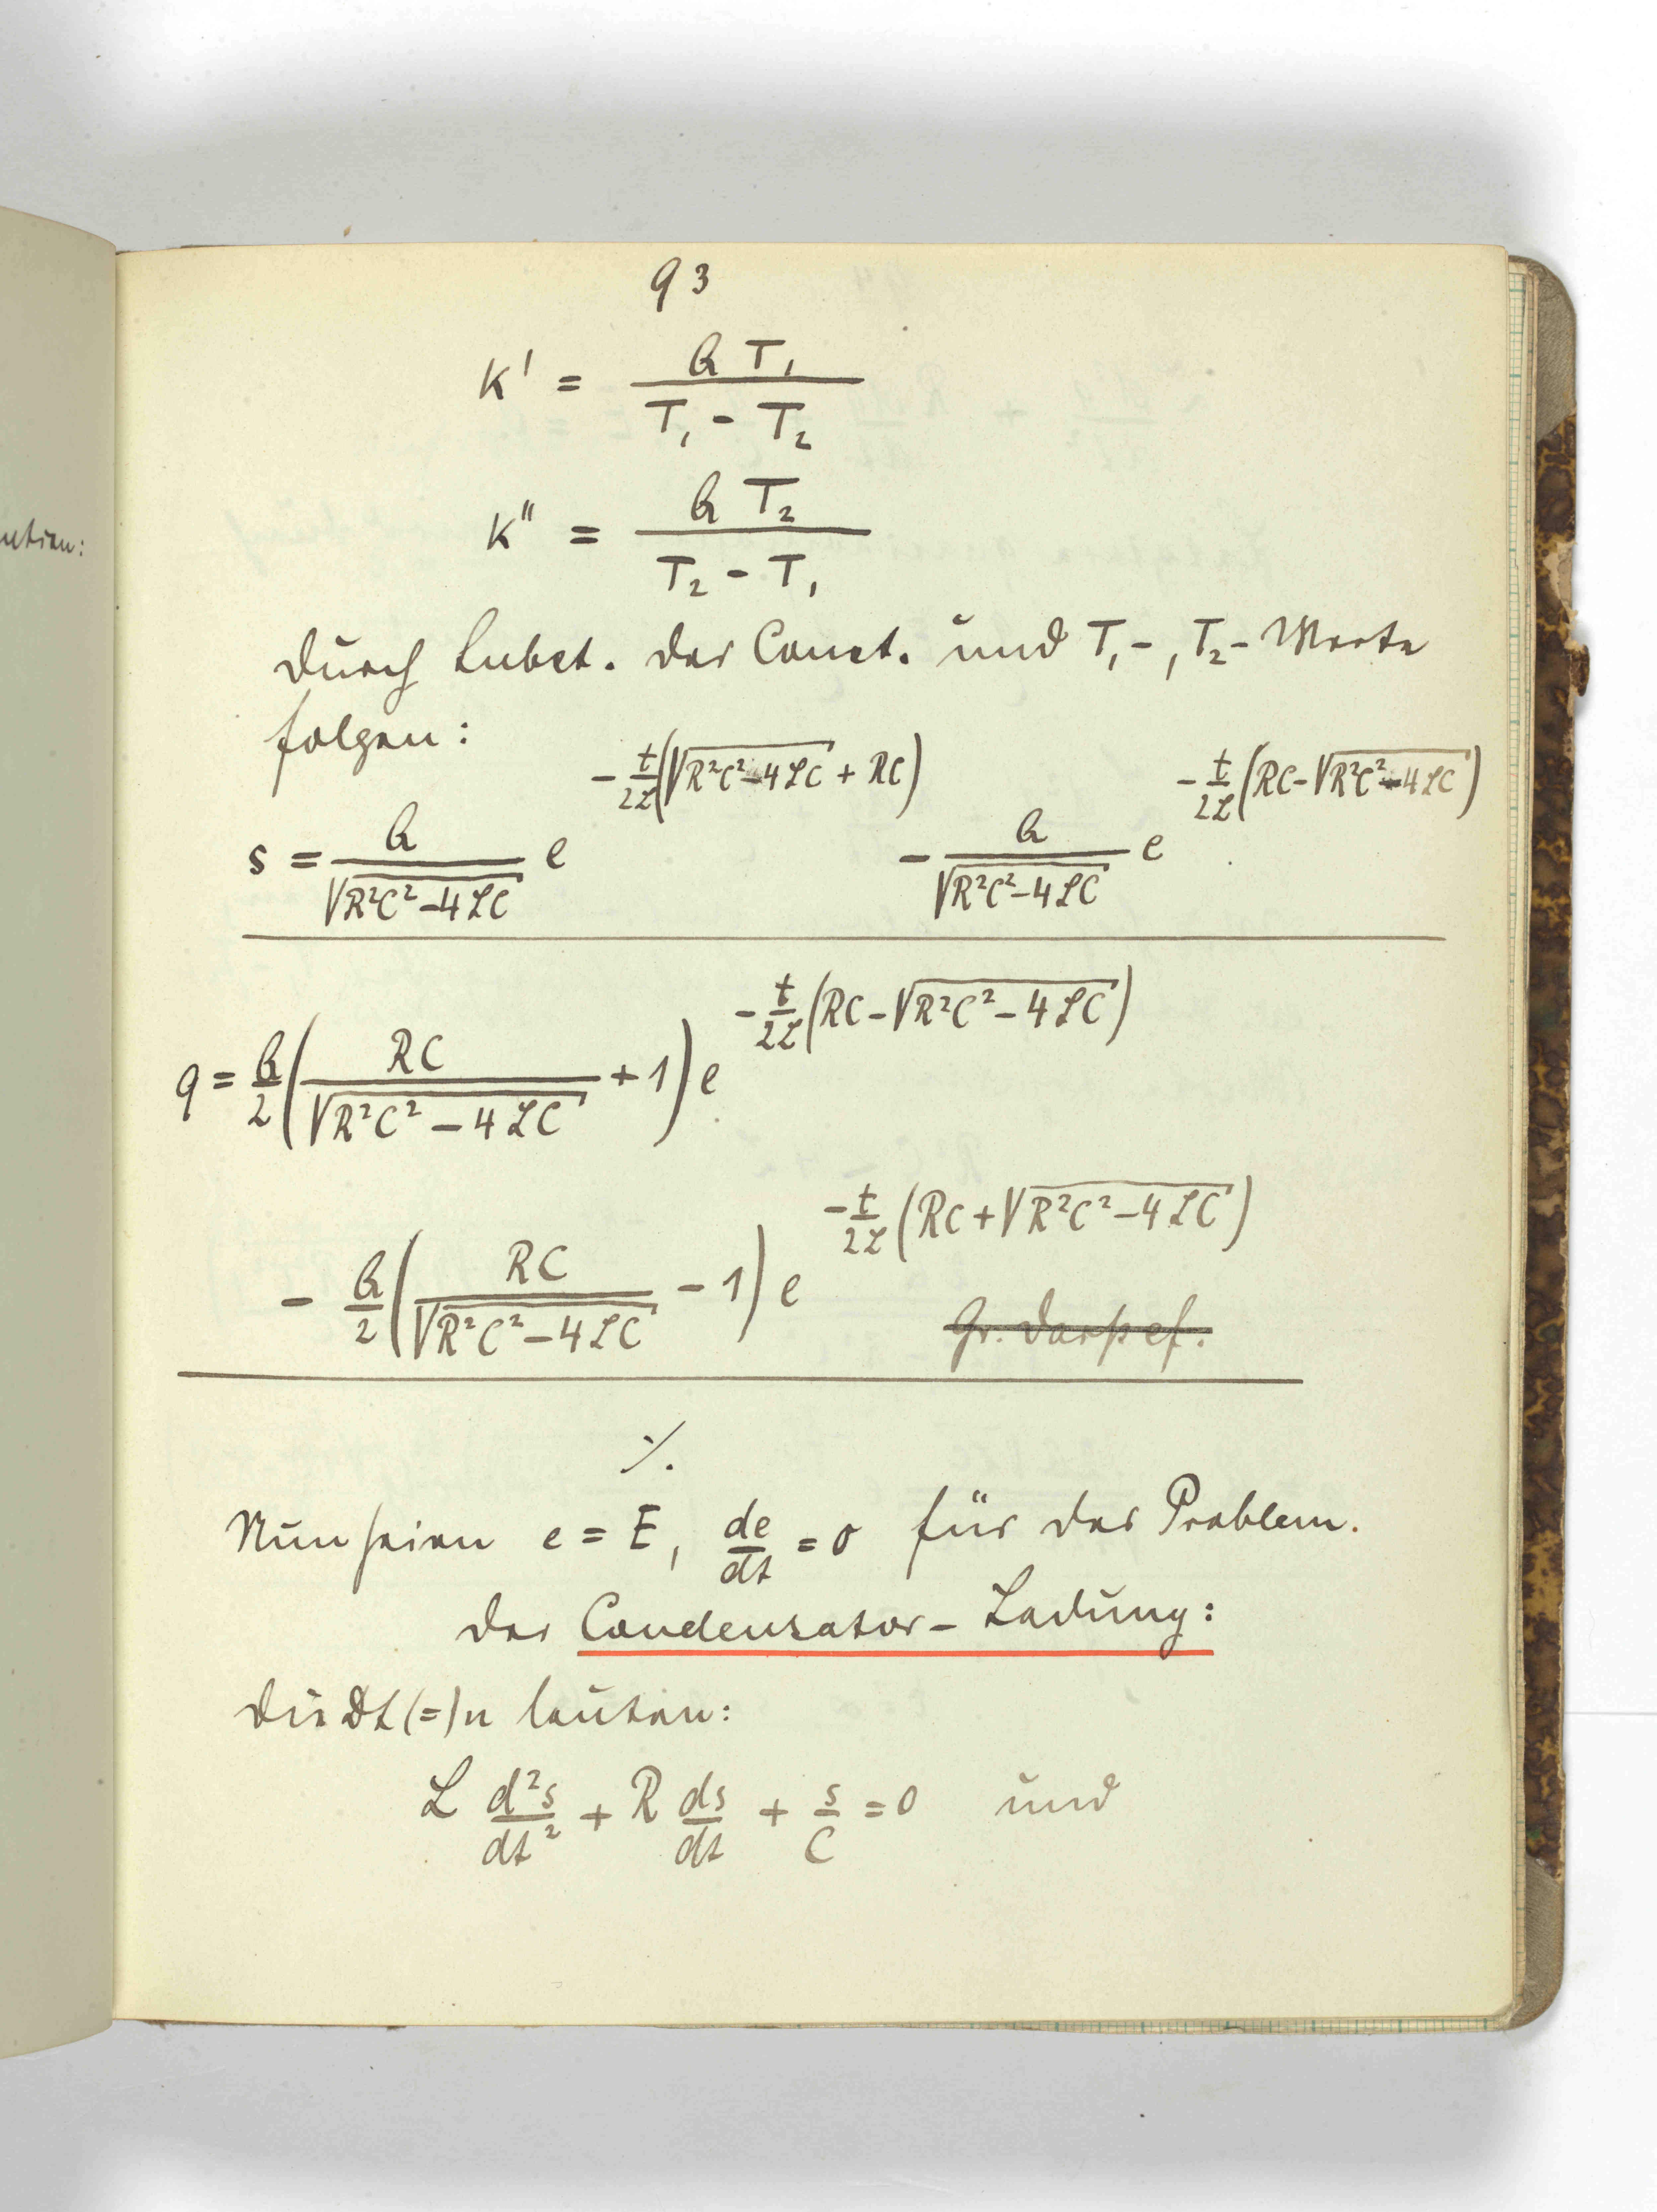 ution:
93
K' = Q T₁ / (T₁ - T₂)
K" = Q T₂ / (T₂ - T₁)
Durch Subst. der Const. und T₁-, T₂- Werte
folgen:
s = Q/√(R²C²-4LC) e^(-t/2L (√(R²C²-4LC) + RC)) - Q/√(R²C²-4LC) e^(-t/2L (RC-√(R²C²-4LC)))
q = Q/2 (RC/√(R²C²-4LC) + 1) e^(-t/2L (RC-√(R²C²-4LC)))
- Q/2 (RC/√(R²C²-4LC) - 1) e^(-t/2L (RC+√(R²C²-4LC)))
Gr.
·/.
Nun seien e = E, de/dt = 0 für das Problem.
der Condensator-Ladung:
Die Dt(=)n lauten:
L d²s/dt² + R ds/dt + s/C = 0 und